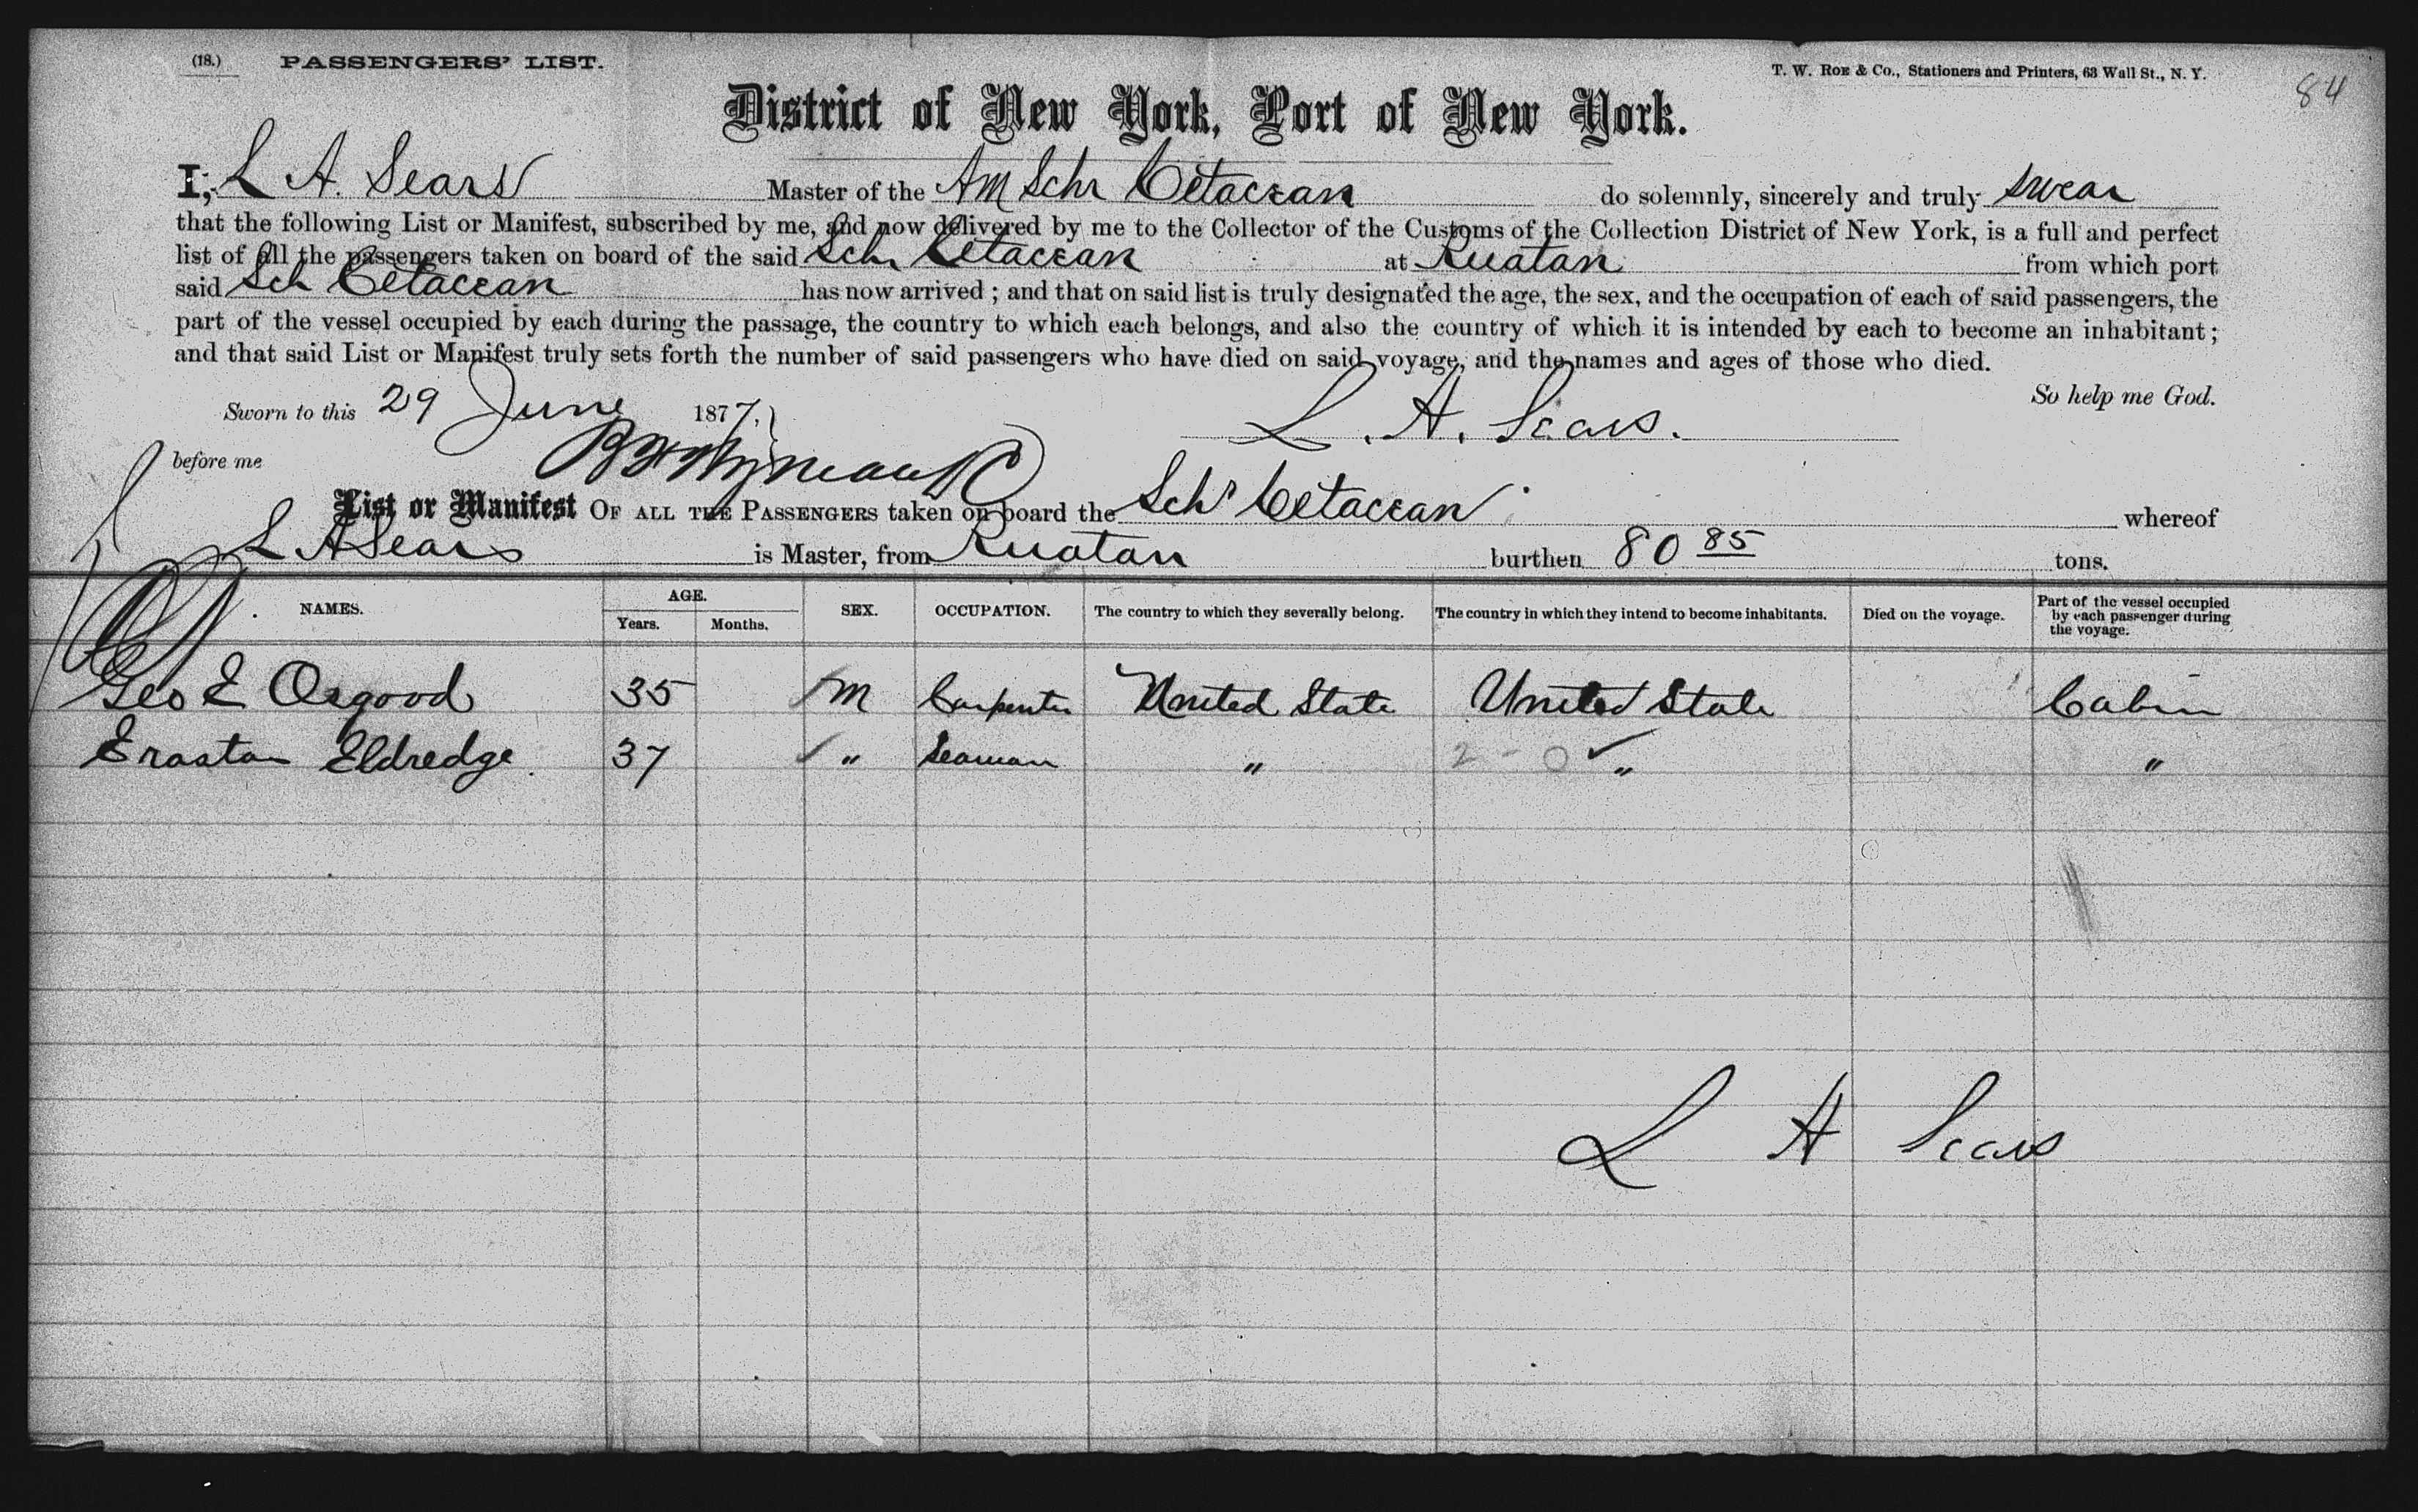 (18.) PASSENGERS' LIST.
T. W. Roe & Co., Stationers and Printers, 63 Wall St., N. Y.
84
District of New York, Port of New York.
I, L A. Sears Master of the Am Schr Cetacean do solemnly, sincerely and truly swear
that the following List or Manifest, subscribed by me, and now delivered by me to the Collector of the Customs of the Collection District of New York, is a full and perfect
list of all the passengers taken on board of the said Schr Cetacean at Ruatan from which port
said Sch Cetacean has now arrived ; and that on said list is truly designated the age, the sex, and the occupation of each of said passengers, the
part of the vessel occupied by each during the passage, the country to which each belongs, and also the country of which it is intended by each to become an inhabitant ;
and that said List or Manifest truly sets forth the number of said passengers who have died on said voyage, and the names and ages of those who died.
So help me God.
Sworn to this 29 June 1877, L. A. Sears.
before me
List or Manifest OF ALL THE PASSENGERS taken on board the Schr Cetacean whereof
L A Sears is Master, from Ruatan burthen 80 85 tons.
NAMES. AGE. Years. Months. SEX. OCCUPATION. The country to which they severally belong. The country in which they intend to become inhabitants. Died on the voyage. Part of the vessel occupied by each passenger during the voyage.
Geo E Osgood 35 M Carpenter United State United State Cabin
Erastus Eldredge. 37 " Seaman " 2 - 0 ✓ " "
L A Sears